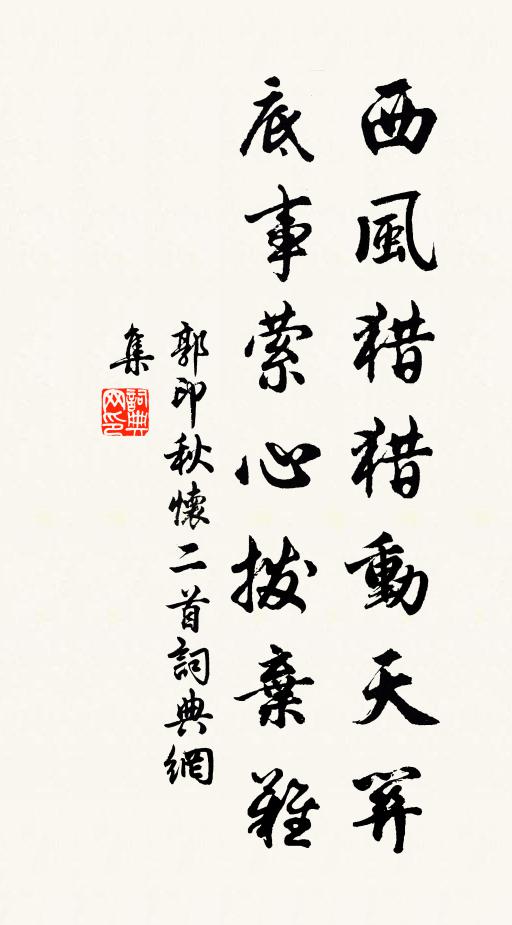 西風猎猎動天關
底事萦心拨棄難
郭印秋懷二首詞典網
集
詞典
网印